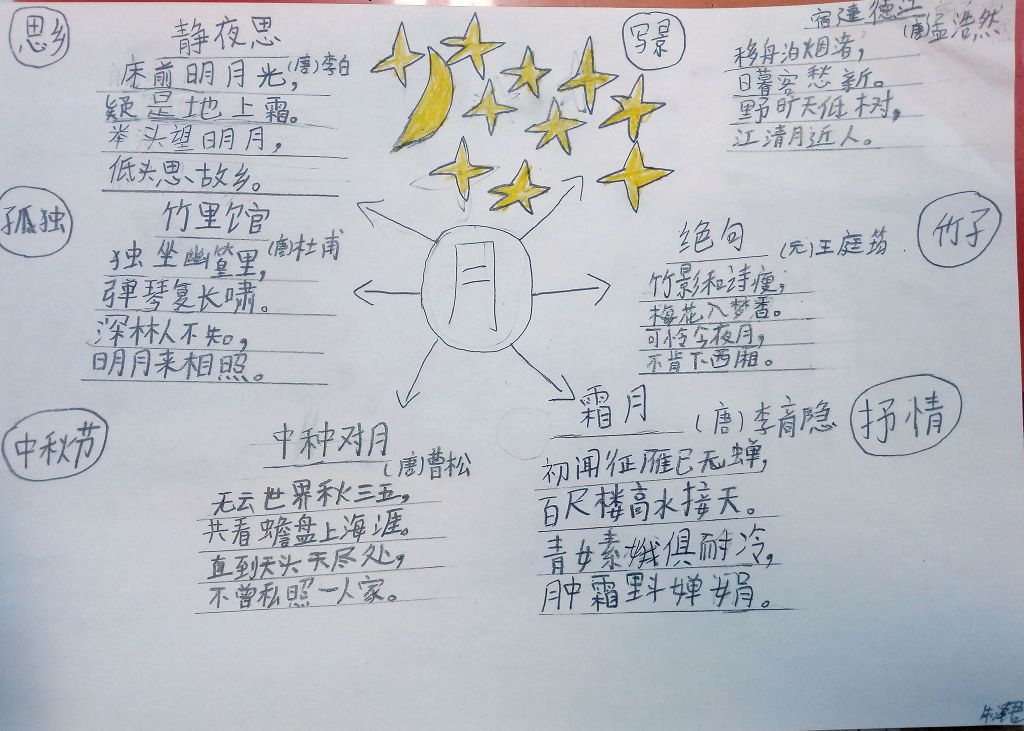 思乡
静夜思
(唐)李白
床前明月光,
疑是地上霜。
举头望明月,
低头思故乡。
写景
宿建德江
(唐)孟浩然
移舟泊烟渚,
日暮客愁新。
野旷天低树,
江清月近人。
孤独
竹里馆
(唐)杜甫
独坐幽篁里,
弹琴复长啸。
深林人不知,
明月来相照。
月
竹子
绝句
(元)王庭筠
竹影和诗瘦,
梅花入梦香。
可怜今夜月,
不肯下西厢。
中秋节
中种对月
(唐)曹松
无云世界秋三五,
共看蟾盘上海涯。
直到天头天尽处,
不曾私照一人家。
抒情
霜月
(唐)李商隐
初闻征雁已无蝉,
百尺楼高水接天。
青女素娥俱耐冷,
月中霜里斗婵娟。